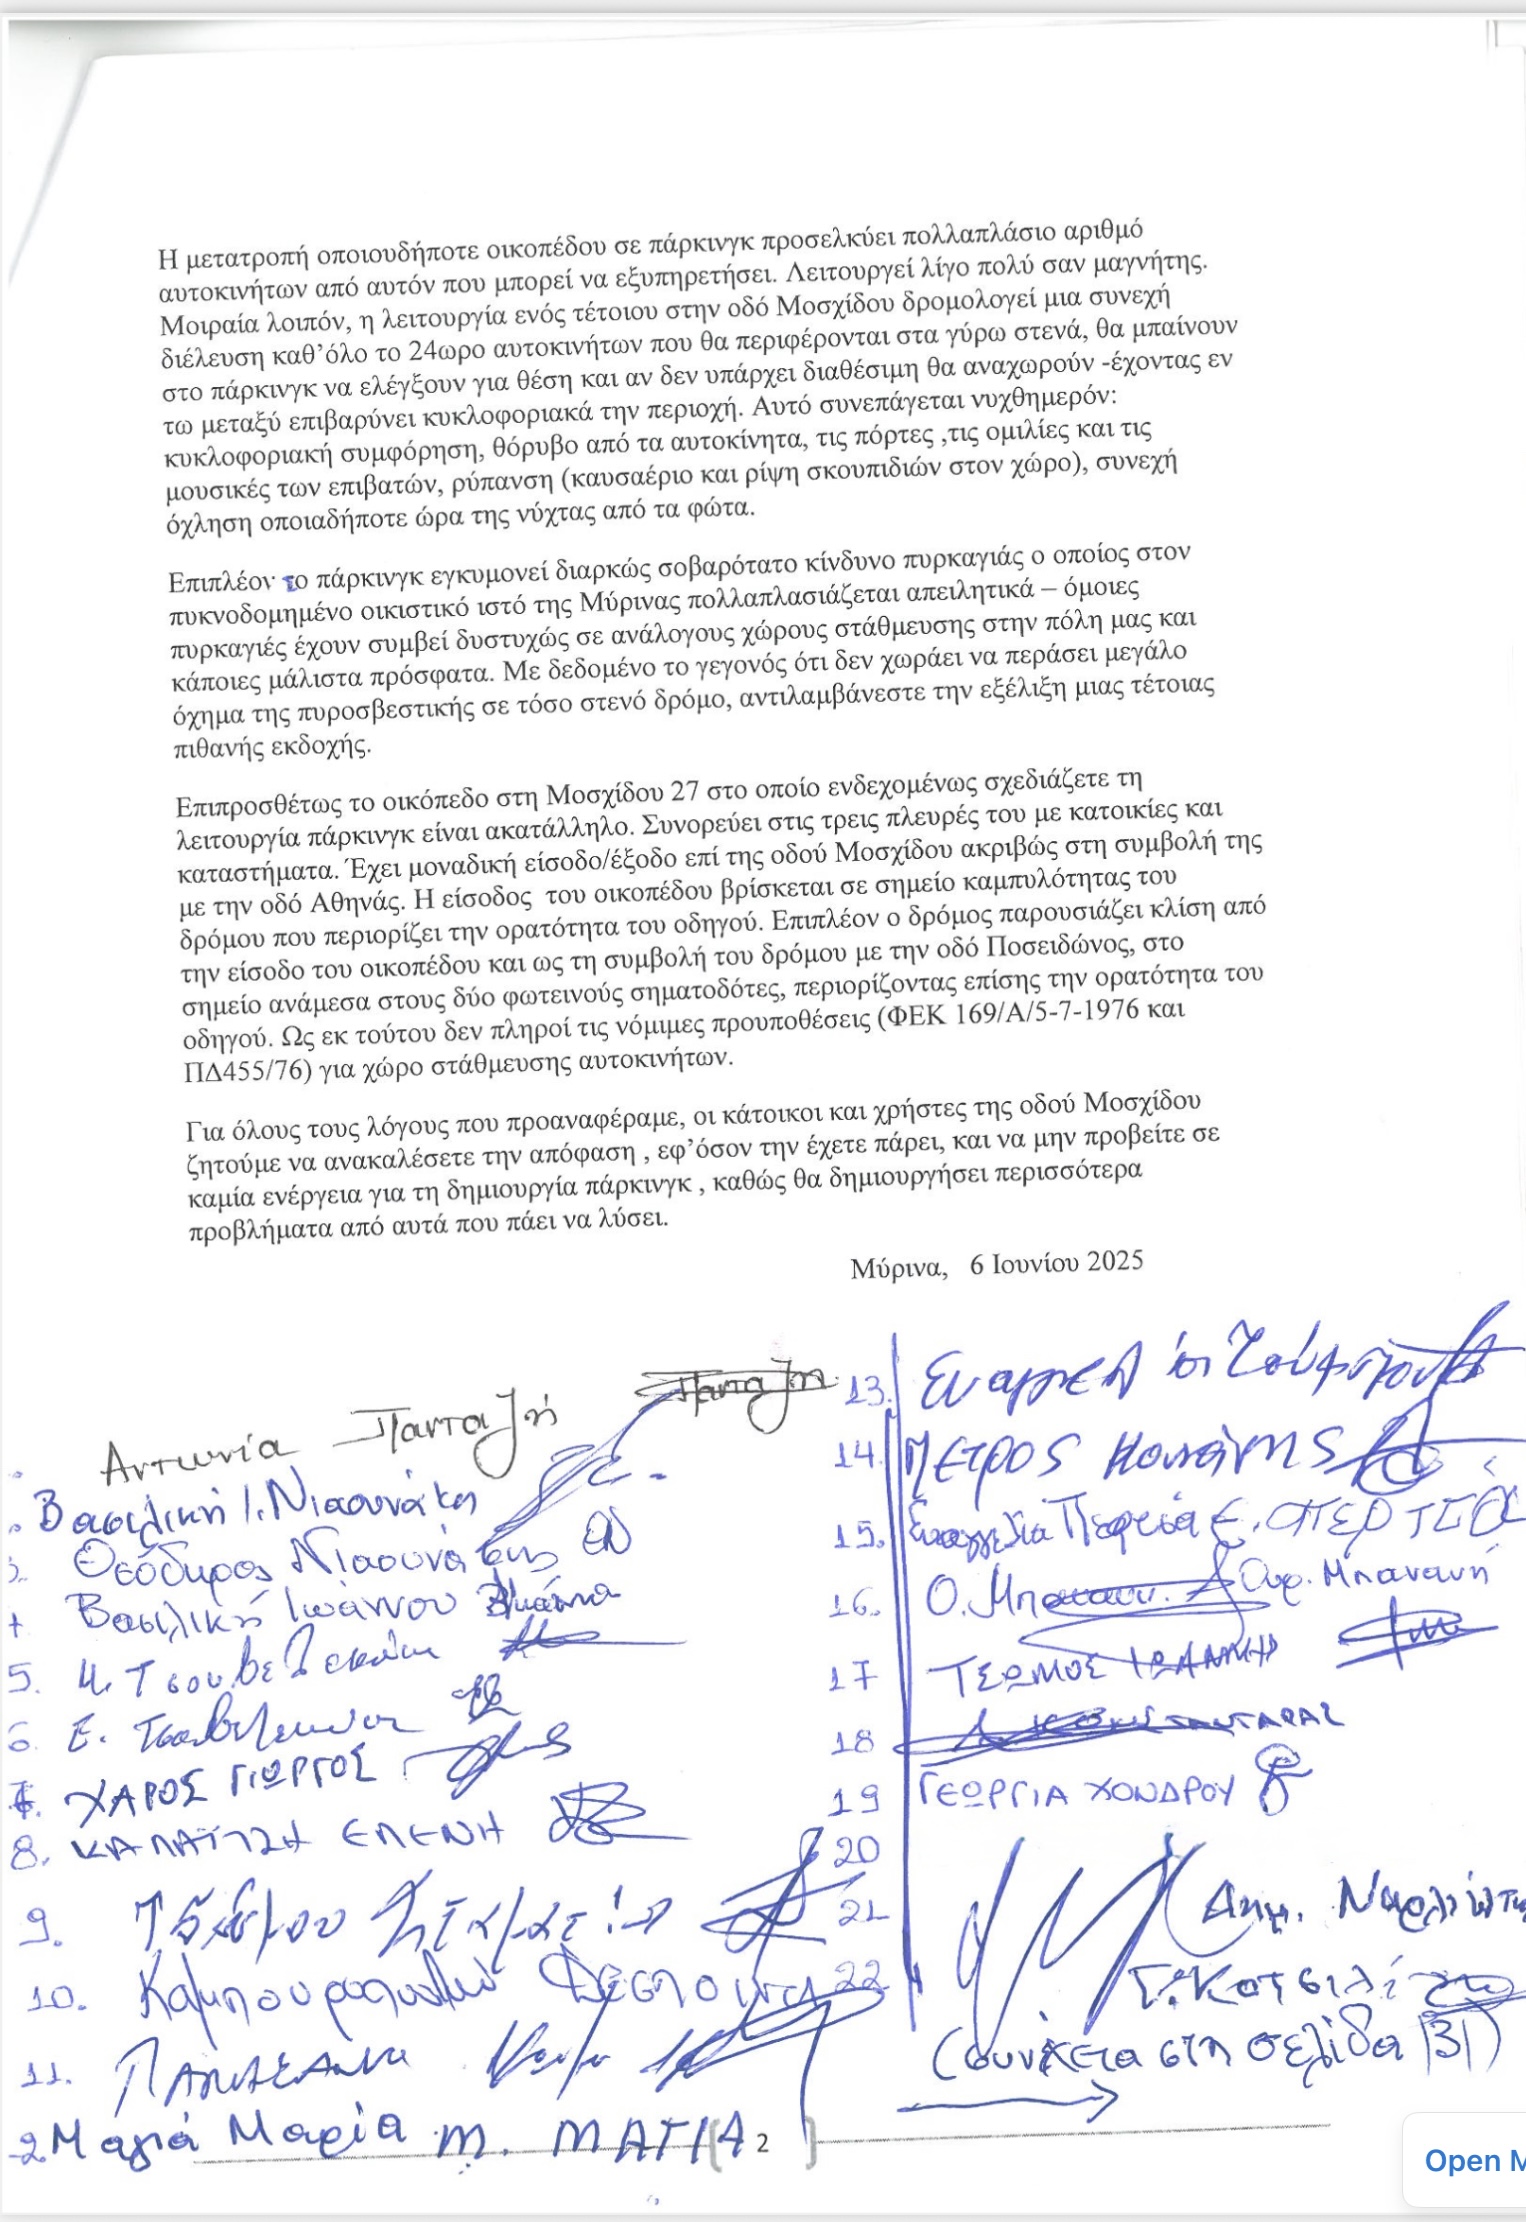 Η μετατροπή οποιουδήποτε οικοπέδου σε πάρκινγκ προσελκύει πολλαπλάσιο αριθμό
αυτοκινήτων από αυτόν που μπορεί να εξυπηρετήσει. Λειτουργεί λίγο πολύ σαν μαγνήτης.
Μοιραία λοιπόν, η λειτουργία ενός τέτοιου στην οδό Μοσχίδου δρομολογεί μια συνεχή
διέλευση καθ’όλο το 24ωρο αυτοκινήτων που θα περιφέρονται στα γύρω στενά, θα μπαίνουν
στο πάρκινγκ να ελέγξουν για θέση και αν δεν υπάρχει διαθέσιμη θα αναχωρούν -έχοντας εν
τω μεταξύ επιβαρύνει κυκλοφοριακά την περιοχή. Αυτό συνεπάγεται νυχθημερόν:
κυκλοφοριακή συμφόρηση, θόρυβο από τα αυτοκίνητα, τις πόρτες ,τις ομιλίες και τις
μουσικές των επιβατών, ρύπανση (καυσαέριο και ρίψη σκουπιδιών στον χώρο), συνεχή
όχληση οποιαδήποτε ώρα της νύχτας από τα φώτα.
Επιπλέον το πάρκινγκ εγκυμονεί διαρκώς σοβαρότατο κίνδυνο πυρκαγιάς ο οποίος στον
πυκνοδομημένο οικιστικό ιστό της Μύρινας πολλαπλασιάζεται απειλητικά – όμοιες
πυρκαγιές έχουν συμβεί δυστυχώς σε ανάλογους χώρους στάθμευσης στην πόλη μας και
κάποιες μάλιστα πρόσφατα. Με δεδομένο το γεγονός ότι δεν χωράει να περάσει μεγάλο
όχημα της πυροσβεστικής σε τόσο στενό δρόμο, αντιλαμβάνεστε την εξέλιξη μιας τέτοιας
πιθανής εκδοχής.
Επιπροσθέτως το οικόπεδο στη Μοσχίδου 27 στο οποίο ενδεχομένως σχεδιάζετε τη
λειτουργία πάρκινγκ είναι ακατάλληλο. Συνορεύει στις τρεις πλευρές του με κατοικίες και
καταστήματα. Έχει μοναδική είσοδο/έξοδο επί της οδού Μοσχίδου ακριβώς στη συμβολή της
με την οδό Αθηνάς. Η είσοδος του οικοπέδου βρίσκεται σε σημείο καμπυλότητας του
δρόμου που περιορίζει την ορατότητα του οδηγού. Επιπλέον ο δρόμος παρουσιάζει κλίση από
την είσοδο του οικοπέδου και ως τη συμβολή του δρόμου με την οδό Ποσειδώνος, στο
σημείο ανάμεσα στους δύο φωτεινούς σηματοδότες, περιορίζοντας επίσης την ορατότητα του
οδηγού. Ως εκ τούτου δεν πληροί τις νόμιμες προυποθέσεις (ΦΕΚ 169/Α/5-7-1976 και
ΠΔ455/76) για χώρο στάθμευσης αυτοκινήτων.
Για όλους τους λόγους που προαναφέραμε, οι κάτοικοι και χρήστες της οδού Μοσχίδου
ζητούμε να ανακαλέσετε την απόφαση , εφ’όσον την έχετε πάρει, και να μην προβείτε σε
καμία ενέργεια για τη δημιουργία πάρκινγκ , καθώς θα δημιουργήσει περισσότερα
προβλήματα από αυτά που πάει να λύσει.
Μύρινα, 6 Ιουνίου 2025
Αντωνία Πανταζή Πανταζή
Βασιλική Ι. Νιαουνάκη
Θεόδωρος Νιαουνάκης
Βασιλική Ιωάννου
5.
6. Ε.
7. ΧΑΡΟΣ ΓΙΩΡΓΟΣ
8. ΚΑΠΑΪΤΖΗ ΕΛΕΝΗ
9.
10. Δέσποινα
11.
Μαγιά Μαρία Μ. ΜΑΓΙΑ
13.
14. Πέτρος
15. Ευαγγελία
16. Ο. Μπανανή
17 ΤΣΩΜΟΣ ΙΩΑΝΝΗΣ
18
19 ΓΕΩΡΓΙΑ ΧΟΝΔΡΟΥ
20
21 Δημ.
22
(συνέχεια στη σελίδα |3|)
2
Open M